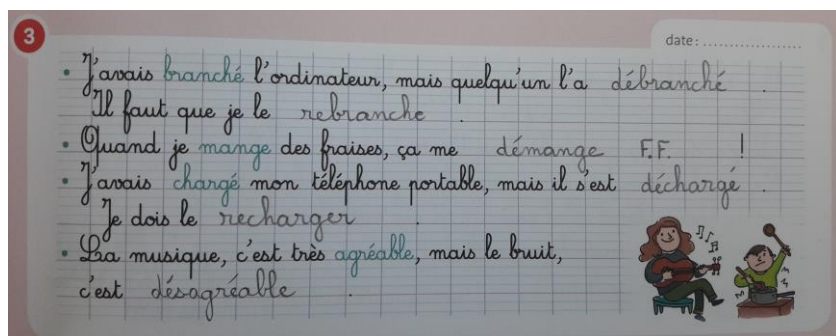 3
date: ...................
• J'avais branché l'ordinateur, mais quelqu'un l'a débranché .
Il faut que je le rebranche .
• Quand je mange des fraises, ça me démange F.F. !
• J'avais chargé mon téléphone portable, mais il s'est déchargé .
Je dois le recharger .
• La musique, c'est très agréable, mais le bruit,
c'est désagréable .